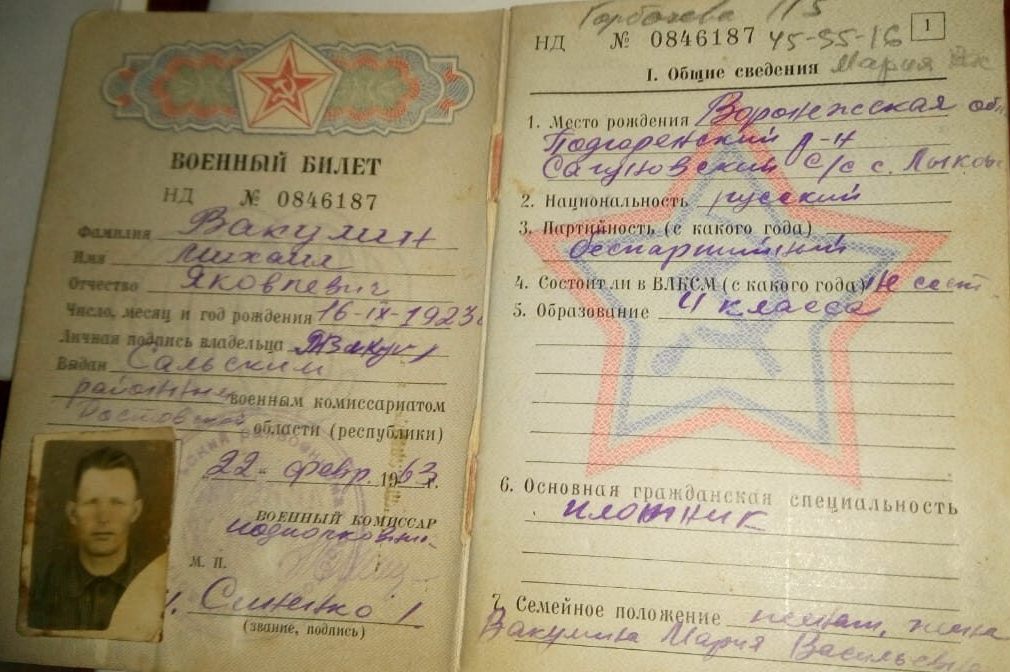 ВОЕННЫЙ БИЛЕТ
НД № 0846187
Фамилия Вакулин
Имя Михаил
Отчество Яковлевич
Число, месяц и год рождения 16-IX-1923г
Личная подпись владельца
Выдан Сальским
районным военным комиссариатом
Ростовской области (республики)
22 февр. 1963 г.
ВОЕННЫЙ КОМИССАР
подполковник
М. П.
(звание, подпись)
Горбачева
НД № 0846187 45-55-16 1
Мария
I. Общие сведения
1. Место рождения Воронежская обл
Подгоренский р-н
Сагуновский с/с с.
2. Национальность русский
3. Партийность (с какого года)
беспартийный
4. Состоит ли в ВЛКСМ (с какого года) Не сост
5. Образование 4 класса
6. Основная гражданская специальность
плотник
7. Семейное положение женат, жена
Вакулина Мария Васильевна